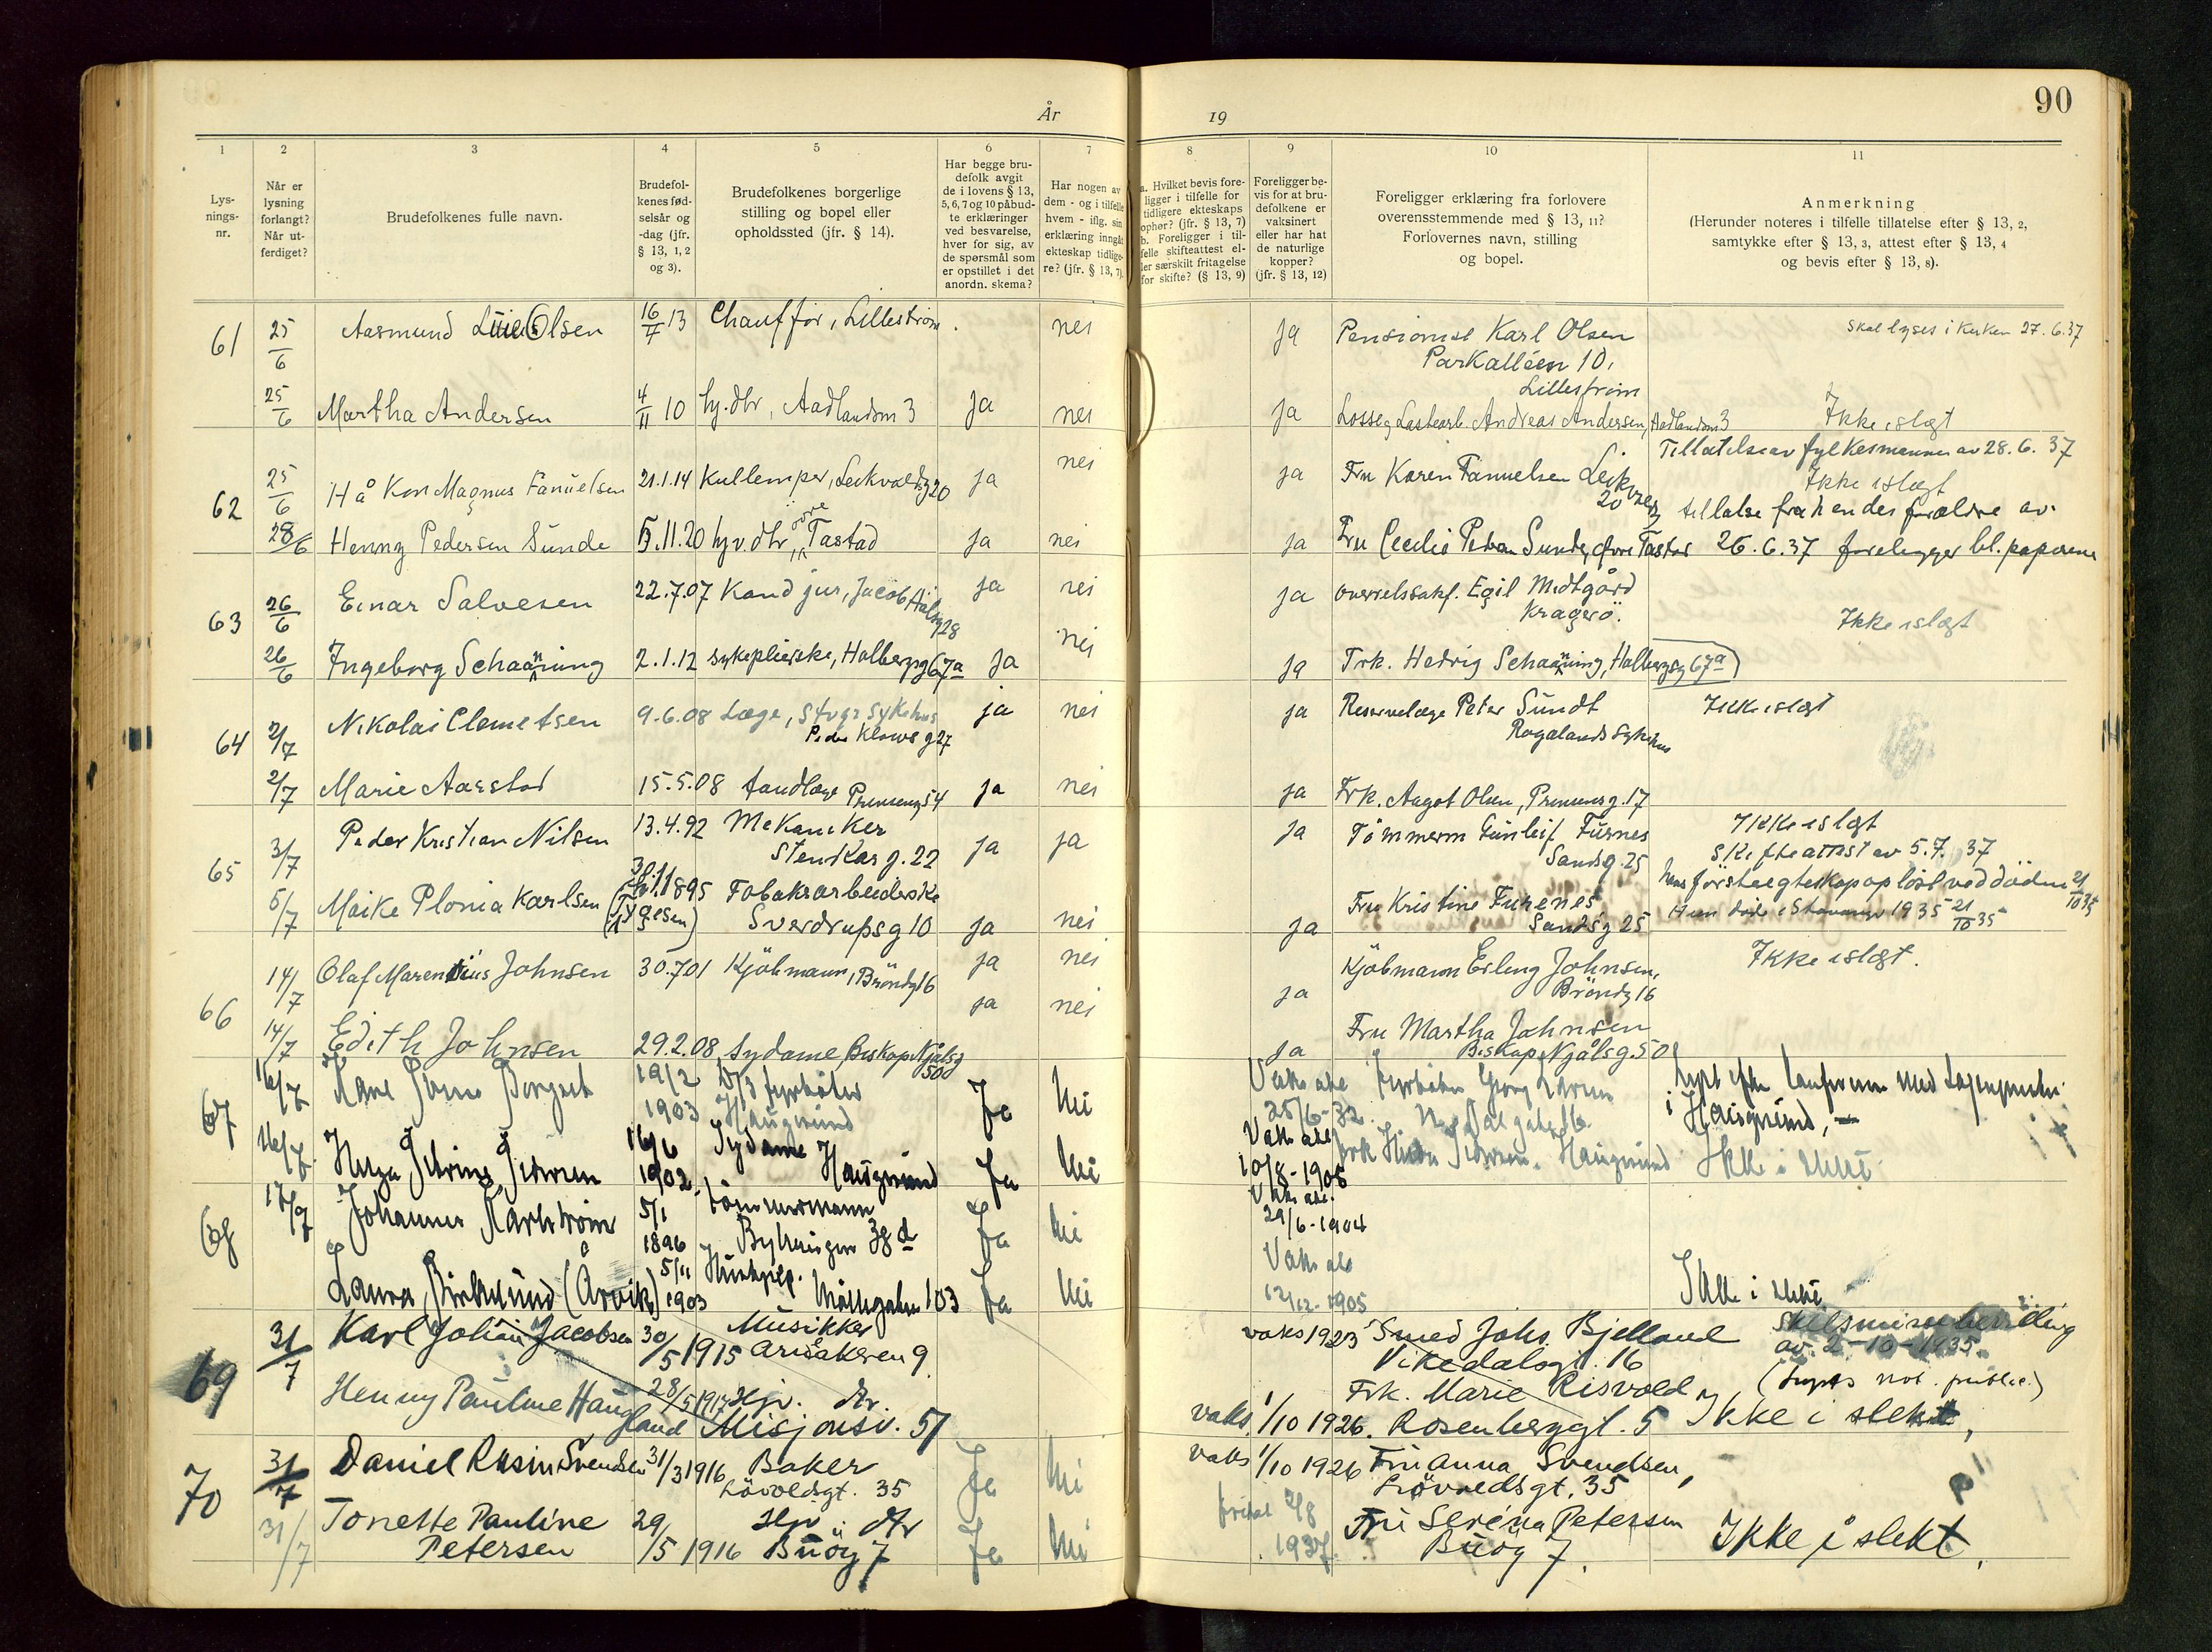 År 19
90
1 2 3 4 5 6 7 8 9 10 11
Lys-
nings-
nr.
Når er
lysning
forlangt?
Når ut-
ferdiget?
Brudefolkenes fulle navn.
Brudefol-
kenes fød-
selsår og
-dag (jfr.
§ 13, 1, 2
og 3).
Brudefolkenes borgerlige
stilling og bopel eller
opholdssted (jfr. § 14).
Har begge bru-
defolk avgit
de i lovens § 13,
5, 6, 7 og 10 påbud-
te erklæringer
ved besvarelse,
hver for sig, av
de spørsmål som
er opstillet i det
anordn. skema?
Har nogen av
dem - og i tilfelle
hvem - iflg. sin
erklæring inngåt
ekteskap tidlige-
re? (jfr. § 13, 7).
a. Hvilket bevis fore-
ligger i tilfelle for
tidligere ekteskaps
ophør? (jfr. § 13, 7)
b. Foreligger i til-
felle skifteattest el-
ler særskilt fritagelse
for skifte? (§ 13, 9)
Foreligger be-
vis for at bru-
defolkene er
vaksinert
eller har hat
de naturlige
kopper?
(jfr. § 13, 12)
Foreligger erklæring fra forlovere
overensstemmende med § 13, 11?
Forlovernes navn, stilling
og bopel.
Anmerkning
(Herunder noteres i tilfelle tillatelse efter § 13, 2,
samtykke efter § 13, 3, attest efter § 13, 4
og bevis efter § 13, 8).
61 25/6 Aasmund Olsen 16/7 13 Chauffør, Lillestrøm nei ja Pensionist Karl Olsen skal lyses i kirken 27.6.37
Parkalléen 10,
Lillestrøm
25/6 Martha Andersen 4/11 10 hj.dtr, Aadlandsm 3 ja nei ja Losse og Lastearb. Andreas Andersen, Aadlandsm 3 Ikke i slegt
Tillatelse av fylkesmannen av 28.6.37
62 25/6 Håkon Magnus Fanuelsen 21.1.14 Kullemper, 20 ja nei ja Fru Karen Fanuelsen 20 Ikke i slegt
tillatelse fra hendes foreldre av
28/6 Henny Pedersen Sunde 5.11.20 hjv.dtr, øvre Tastad ja nei ja Fru Cecilie Sunde, øvre Tastad 26.6.37 foreligger bl. papirene
63 26/6 Einar Salvesen 22.7.07 Kand jur, Jacob 28 ja nei ja overrettssakf. Egil Midtgård
Kragerö. Ikke i slegt
26/6 Ingeborg Schaanning 2.1.12 sykepleierske, Holbergsg 67a ja nei ja Frk. Hedvig Schaanning, Holbergsg 67a
64 2/7 Nikolai Clemetsen 9.6.08 Læge, Stvgr Sykehus ja nei ja Reservelæge Peter Sundt Ikke i slegt
Peder Klows g 27 Rogalands Sykehus
2/7 Marie Aarstad 15.5.08 tandlæge 54 ja nei ja Frk. Aagot Olsen, 17
65 3/7 Peder Kristian Nilsen 13.4.92 Mekaniker ja ja ja Tömmerm Gunleif Furnes Ikke i slegt
Stenkarg. 22 Sandsg. 25 Skifteattest av 5.7.37
5/7 Maike Plonia Karlsen (Tygesen) 1895 Tobaksarbeiderske Fru Kristine Furenes første egteskap opløst ved døden 21/10 35
Sverdrupsg 10 ja nei ja Sandsg 25 Hun døde i Stavanger 1935 21/10 35
66 14/7 Olaf Marentius Johnsen 30.701 Kjöbmann, Bröndg 16 ja nei ja Kjöbmann Erling Johnsen, Ikke i slegt.
Bröndg 16
14/7 Edith Johnsen 29.2.08 sydame Biskop Njålsg 50 ja nei ja Fru Martha Johnsen
Biskop Njålsg. 50
67 16/7 19/2 1903 fyrbøter Haugesund Ja Nei Vaks att 25/6-32 fyrbøter Georg
i Haugesund, -
16/7 Helga 16/6 1902 Sydame Haugesund Ja Nei Vaks att 10/8-1908 frk Haugesund Ikke i slekt
68 17/7 Johannes Karlström 5/1 1896 tömmermann Byhaugen 38 d Ja Nei Vaks att. 29/6-1904
Laura Birkelund (Årvik) 5/11 1903 Hushjelp. Möllegaten 103 Ja Nei Vaks att 12/12-1905 Ikke i slekt
69 31/7 Karl Johan Jacobsen 30/5 1915 Musikker vaks 1923 Smed Johs. Bjelland Skilsmissebevilling
9 Vikedalsgt. 16 av 2-10-1935.
Henny Pauline Haugland 28/5 1917 Hjv. dtr. Frk. Marie Risvold,
Misjonsv. 51 vaks. 1/10 1926. Rosenberggt. 5 Ikke i slekt,
70 31/7 Daniel Rasin Svendsen 31/3 1916 Baker Ja Nei vaks 1/10 1926 Fru Anna Svendsen,
Lövoldsgt. 35 Lövoldsgt. 35
31/7 Tonette Pauline Petersen 29/5 1916 Hjv. dtr Ja Nei 2/8 1937 Fru Serina Petersen Ikke i slekt,
Buög 7 Buög 7.